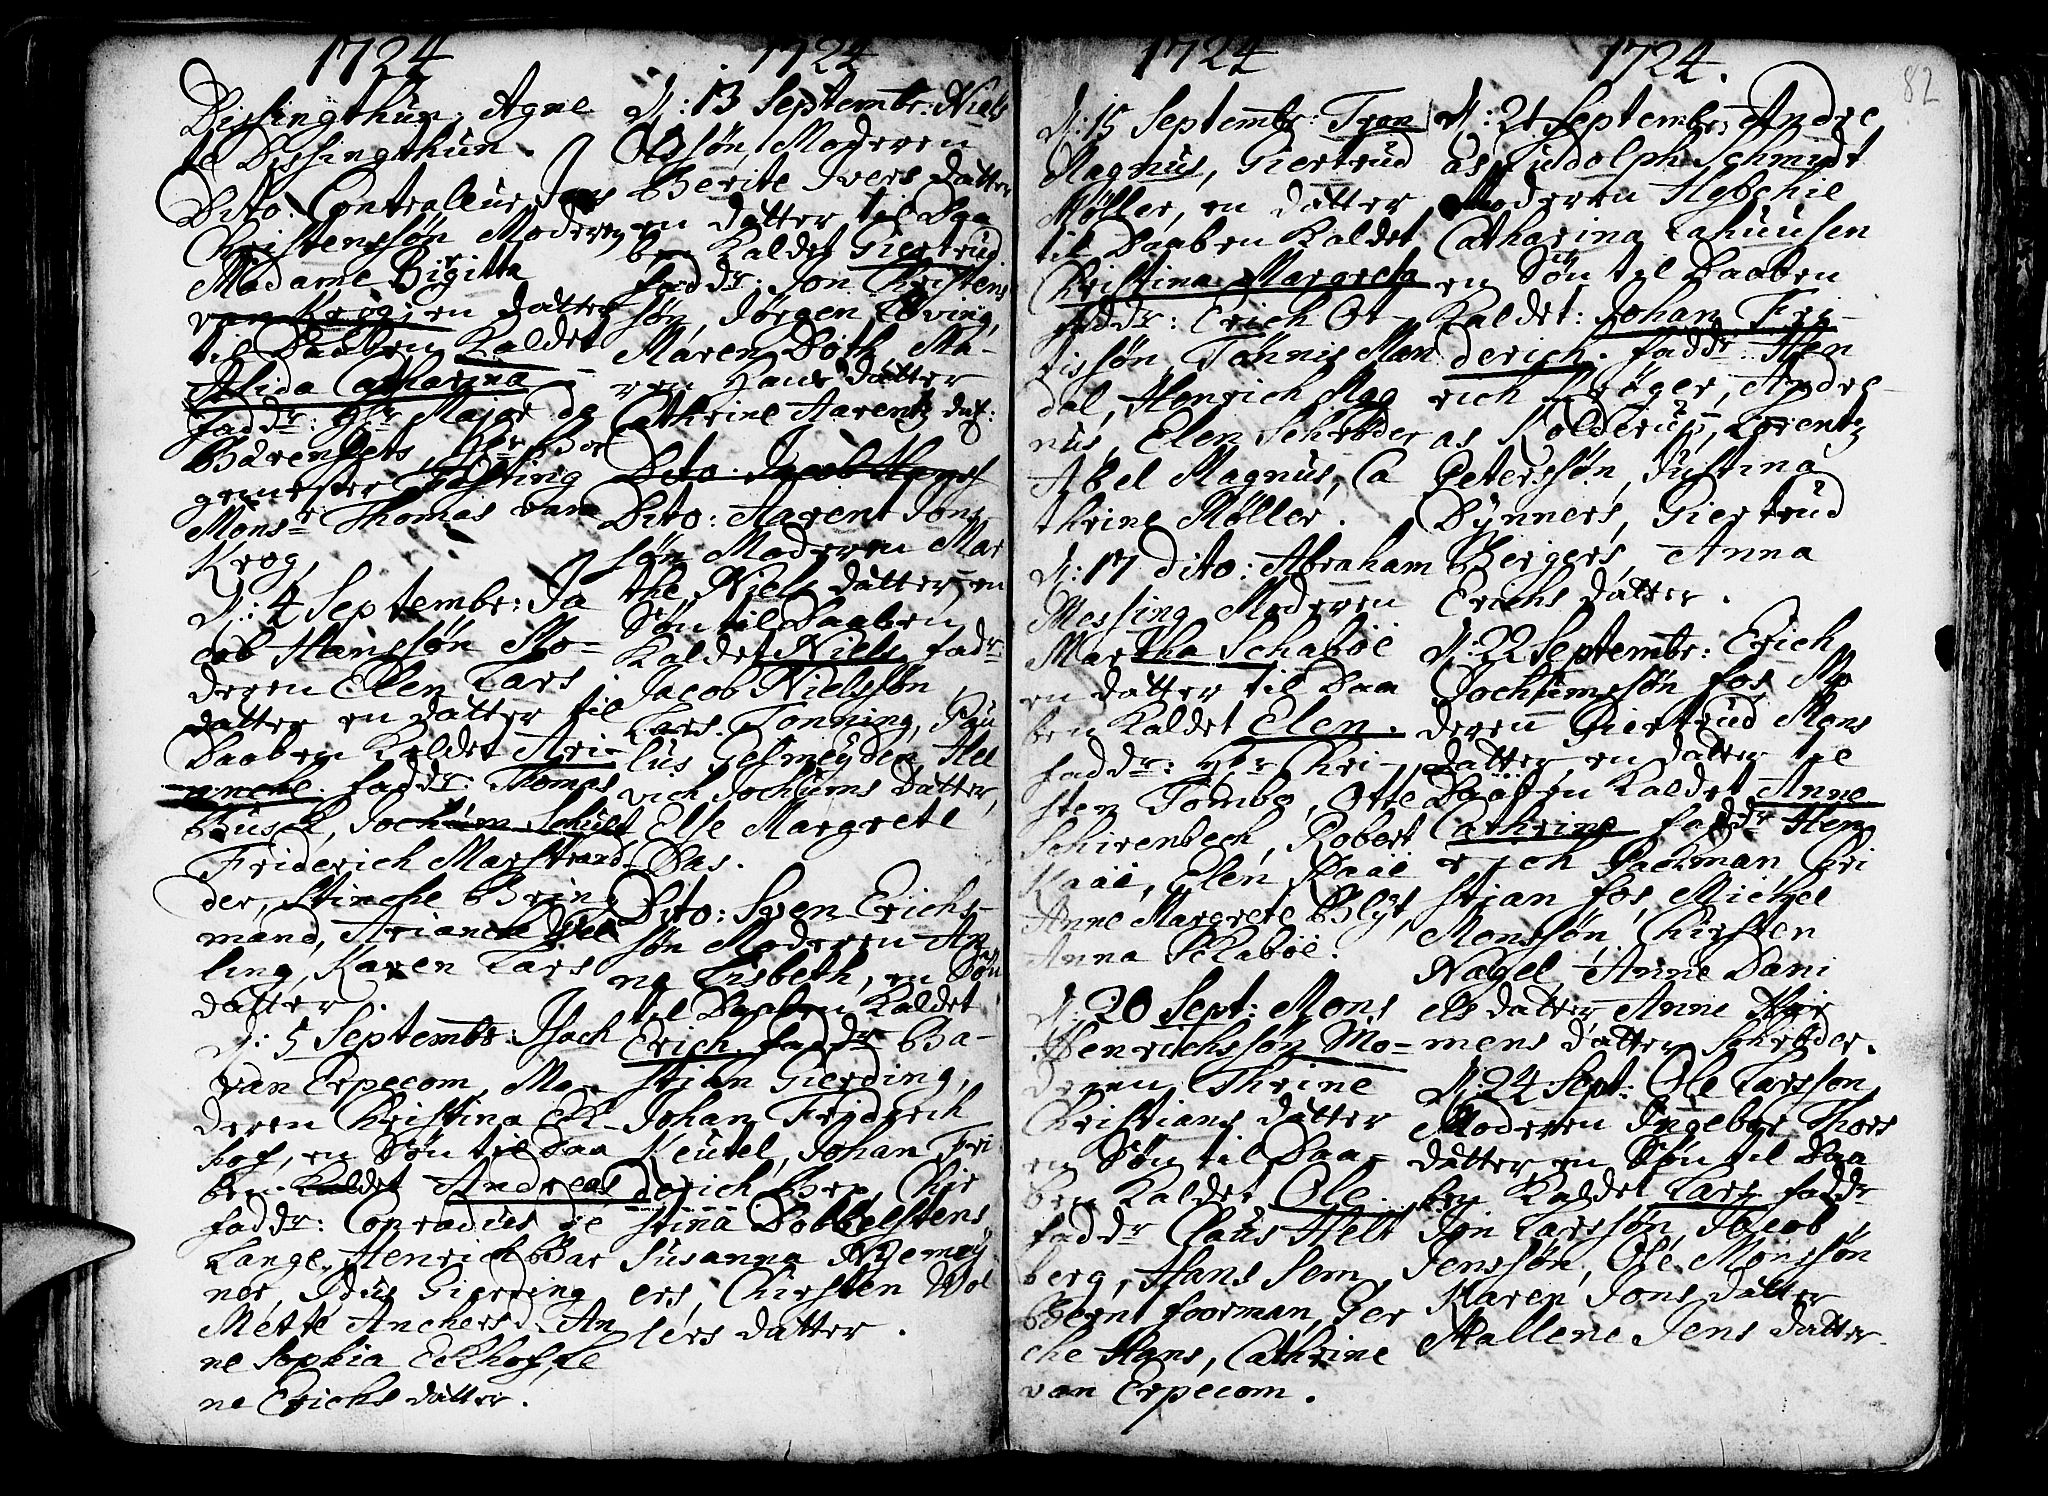 1724
Dissingthun, Agne
te Dissingthun.
Dito: Contralleur Jens
Christenssøn Moderen
Madame Birgitta
van Krog, en datter
til Daaben Kaldet
Alida Catharina
fadd:r Hr Major de
gemester Fasting
Mons:r Thomas vann
Krog,
D: 4 Septembr: Ja
cob Hanssøn Mo=
deren Ellen Lars
datter en datter til
Daaben Kaldet Ari-
aneke. fadd:r Thomas
Busch, Jochum Schult
Friderich Marstrand
der, Stineke Brin
mand, Arianeke
ling, Karen Lars
datter.
D: 5 Septembr: Isach
van Erpecom, Mo-
deren Christina Ek-
hof, en Søn til Daa
ben Kaldet Andreas
fadd:r: Conradus de
Lange, Henrich Bar
ner, Idus Gierding
Mette Anchersd. An
ne Sophia Eckhof, le
ne Erichs datter.
1724
D: 13 Septembr: Niels
Olssøn, Moderen
Berite Ivers datter
en datter til Daa
ben Kaldet Giertrud.
fadd:r: Jon Christens
søn, Jørgen Løving,
Maren Both, Ma-
ren Hans datter
Cathrine Aarentz dat:
Dito: Jacob Hanss
Dito: Aarent Jons
søn Moderen Mar
the Niels datter, en
Søn til Daaben
Kaldet Niels, fadr
Jacob Nielssøn,
Lars Tonning, Pau
lus Gesmeyden, Hel
vich Jochums datter,
Else Margrete
Das.
Dito: Sven Erichs-
søn Moderen An
na Lisbeth, en Søn
til Daaben Kaldet
Erich. fadd:r Ba-
stian Gierding,
Johan Friderich
Keutel, Johan Fri
derich Chir
stina Dobbelstens
Susanna Nyemey
ers, Chirsten Wol
lers datter.
1724
D: 15 Septembr: Tron
Magnus, Giertrud
Møller, en datter
til Daaben Kaldet
Christina Margreta
fadd:r: Erich Ot-
tissøn, Tønnis Man
dal, Henrich Mag
nus, Elen Schrøder
Abel Magnus, Ca
thrine Møller.
D: 17 dito: Abraham
Messing Moderen
Martha Schabøe
en datter til Daa
ben Kaldet Elen.
fadd:r: Hr Chri-
sten Tombo, Otte
Schirenbech, Robert
Kaae, Elen Kaae
Anne Margrete Blyt,
Anna Schabøe.
D: 20 Sept: Mons
Henrichssøn Mo=
deren Thrine
Christians datter
en Søn til Daa-
ben Kaldet Ole.
fadd:r Claus Helt
berg, Hans Sem,
Bernt foorman, Ger
che Hans, Cathrine
van Erpecom.
1724.
82
D: 21 Septembr: Andre
as Ludolph Schmidt
Moderen Hybchie
Catharina Lahuusen
en Søn til Daaben
Kaldet: Johan Fri-
derich. fadd:r: Hen
rich Krøger, Andre-
as Kolderup, Lorentz
Peterssøn, Justina
Dynners, Giertrud
Bergers, Anna
Erichs datter.
D: 22 Septembr: Erich
Jochumssøn fos Mo
deren Giertrud Mons
datter, en datter til
Daaben Kaldet Anne
Cathrine fadd:r Hen
rich Packman, Chri
stian fos, Michel
Monssøn, Chirsten
Nagel, Anne Dani
els datter Anne
mens datter Schrøder.
D: 24 Sept: Ole Larsson
Moderen Ingebor Thors
datter en Søn til Daa
ben Kaldet Lars fadd:r
Jon Larssøn, Jacob
Jenssøn, Ole Monssøn
Karen Jons datter
Mallene Jens datter.